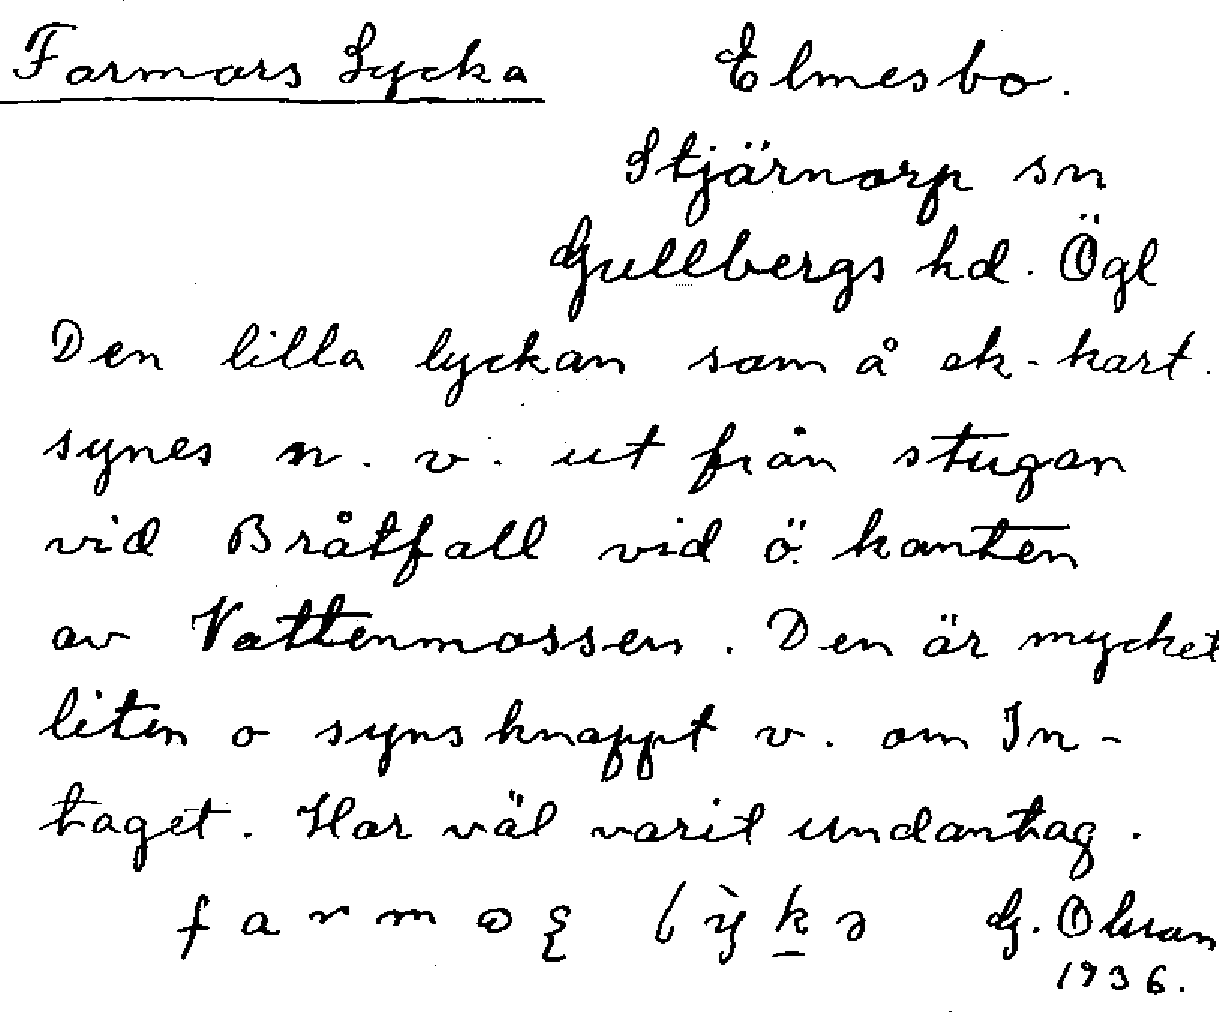 Farmors Lycka Elmesbo.
Stjärnorp sn
Gullbergs hd. Ögl
Den lilla lyckan som å ek-kart.
synes n. v. ut från stugan
vid Bråtfall vid ö. kanten
av Vattenmossen. Den är mycket
liten o syns knappt v. om In-
taget. Har väl varit undantag.
G. Olsson
1936.